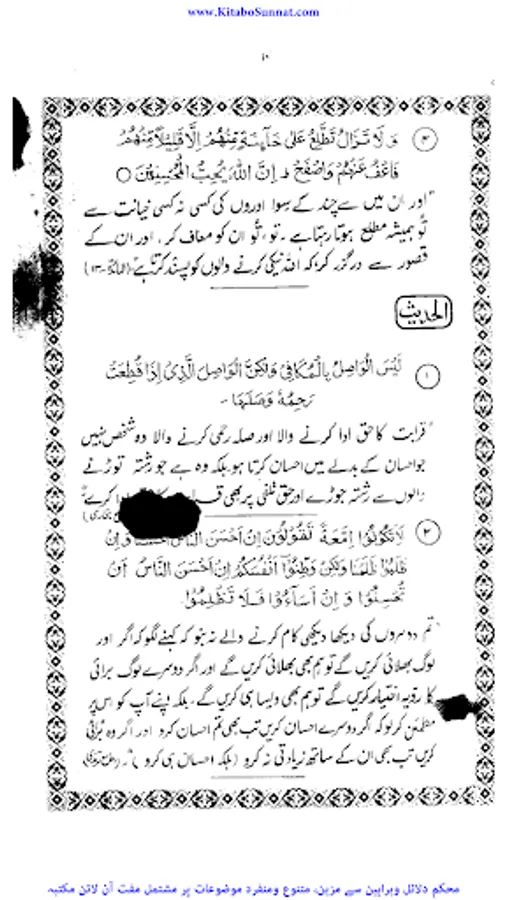 www.KitaboSunnat.com
۱۰
④ وَلَا تَزَالُ تَطَّلِعُ عَلٰى خَآئِنَةٍ مِّنْهُمْ اِلَّا قَلِيْلًا مِّنْهُمْ
فَاعْفُ عَنْهُمْ وَاصْفَحْ ط اِنَّ اللّٰهَ يُحِبُّ الْمُحْسِنِيْنَ ○
"اور ان میں سے چند کے سوا اوروں کی کسی نہ کسی خیانت سے
تو ہمیشہ مطلع ہوتا رہتا ہے۔ تو، تُو ان کو معاف کر، اور ان کے
قصور سے درگزر کر کہ اللہ نیکی کرنے والوں کو پسند کرتا ہے" (المائدہ-۱۳)
الحدیث
① لَيْسَ الْوَاصِلُ بِالْمُكَافِئِ وَلٰكِنَّ الْوَاصِلَ الَّذِىْ اِذَا قُطِعَتْ
رَحِمُهٗ وَصَلَهَا -
"قرابت کا حق ادا کرنے والا اور صلہ رحمی کرنے والا وہ شخص نہیں
جو احسان کے بدلے میں احسان کرتا ہو، بلکہ وہ ہے جو رشتہ توڑنے
والوں سے رشتہ جوڑے اور حق تلفی پر بھی ادا کرے"
بخاری)
② لَا تَكُوْنُوْا اِمَّعَةً تَقُوْلُوْنَ اِنْ اَحْسَنَ النَّاسُ اَحْسَنَّا وَاِنْ
ظَلَمْنَا وَلٰكِنْ وَطِّنُوْا اَنْفُسَكُمْ اِنْ اَحْسَنَ النَّاسُ اَنْ
تُحْسِنُوْا وَاِنْ اَسَاءُوْا فَلَا تَظْلِمُوْا۔
"تم دوسروں کی دیکھا دیکھی کام کرنے والے نہ بنو کہ کہنے لگو کہ اگر اور
لوگ بھلائی کریں گے تو ہم بھی بھلائی کریں گے اور اگر دوسرے لوگ برائی
کا رویہ اختیار کریں گے تو ہم بھی ویسا ہی کریں گے، بلکہ اپنے آپ کو اس پر
مطمئن کر لو کہ اگر دوسرے احسان کریں تب بھی تم احسان کرو اور اگر وہ بُرائی
کریں تب بھی ان کے ساتھ زیادتی نہ کرو (بلکہ احسان ہی کرو)"۔
محکم دلائل وبراہین سے مزین، متنوع ومنفرد موضوعات پر مشتمل مفت آن لائن مکتبہ